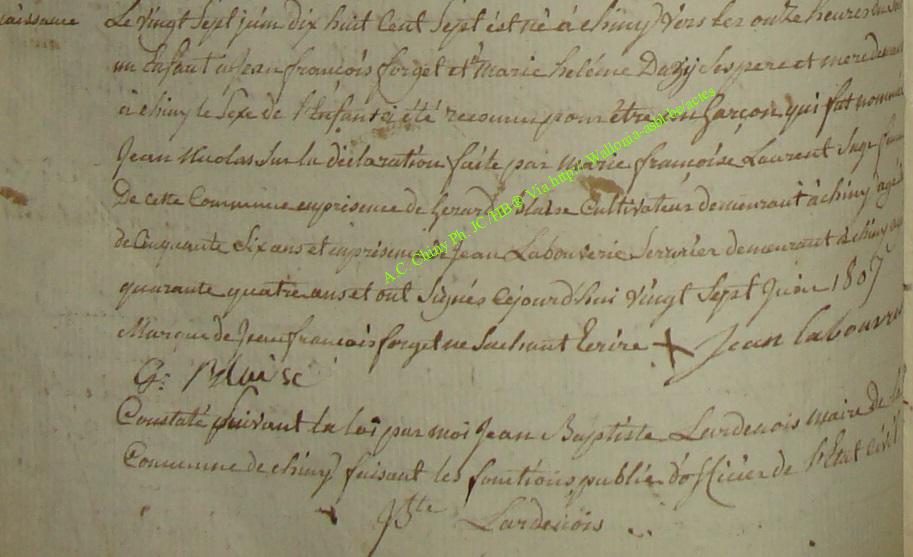 naissance
Le vingt Sept juin dix huit Cent Sept est né à chiny vers les onze heures du
un Enfant à Jean françois forget et Marie heléne Dazÿ Ses pere et mere
à chiny le Sexe de l'Enfant été reconnu pour être un garçon qui fut nommé
Jean Nicolas Sur la déclaration faite par Marie françoise Laurent Sage
De cette Commune en présence de Gerard Blaise Cultivateur demeurant à chiny agé
de Cinquante Six ans et en présence Jean Labouverie Serrurier demeurant à chiny
quarante quatre ans et ont Signés Cejourd'hui vingt Sept Juin 1807
Marque de Jean francois forget ne Sachant Ecrire X Jean labouve
G: Blaise
Constaté Suivant la loi par moi Jean Baptiste Lardenois maire de la
Commune de chiny faisant les fonctions public d'officier de l'Etat Civil
JBte Lardenois
A.C. Chiny Ph. JC/HB @ Via http://Wallonia-asbl.be/actes